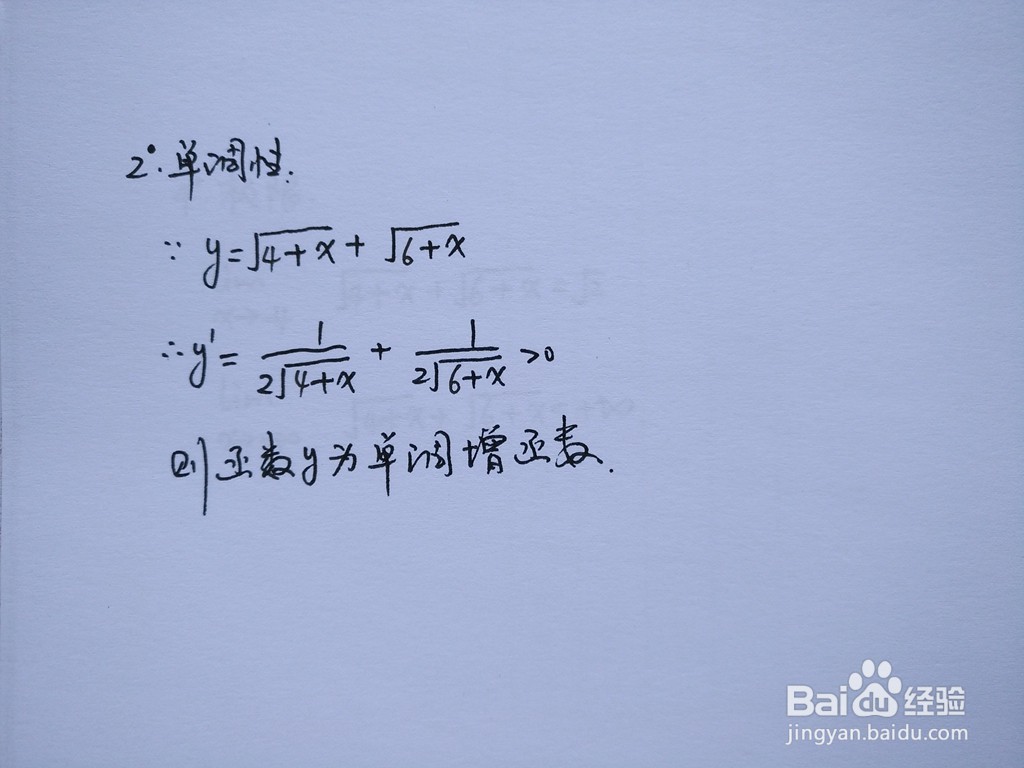 2°.单调性.
∵ y=√4+x + √6+x
∴y'= 1/2√4+x + 1/2√6+x >0
则函数y为单调增函数.
Baidu经验
jingyan.baidu.com